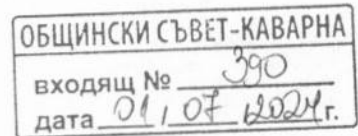 ОБЩИНСКИ СЪВЕТ-КАВАРНА
входящ № 390
дата 01, 07 2024г.